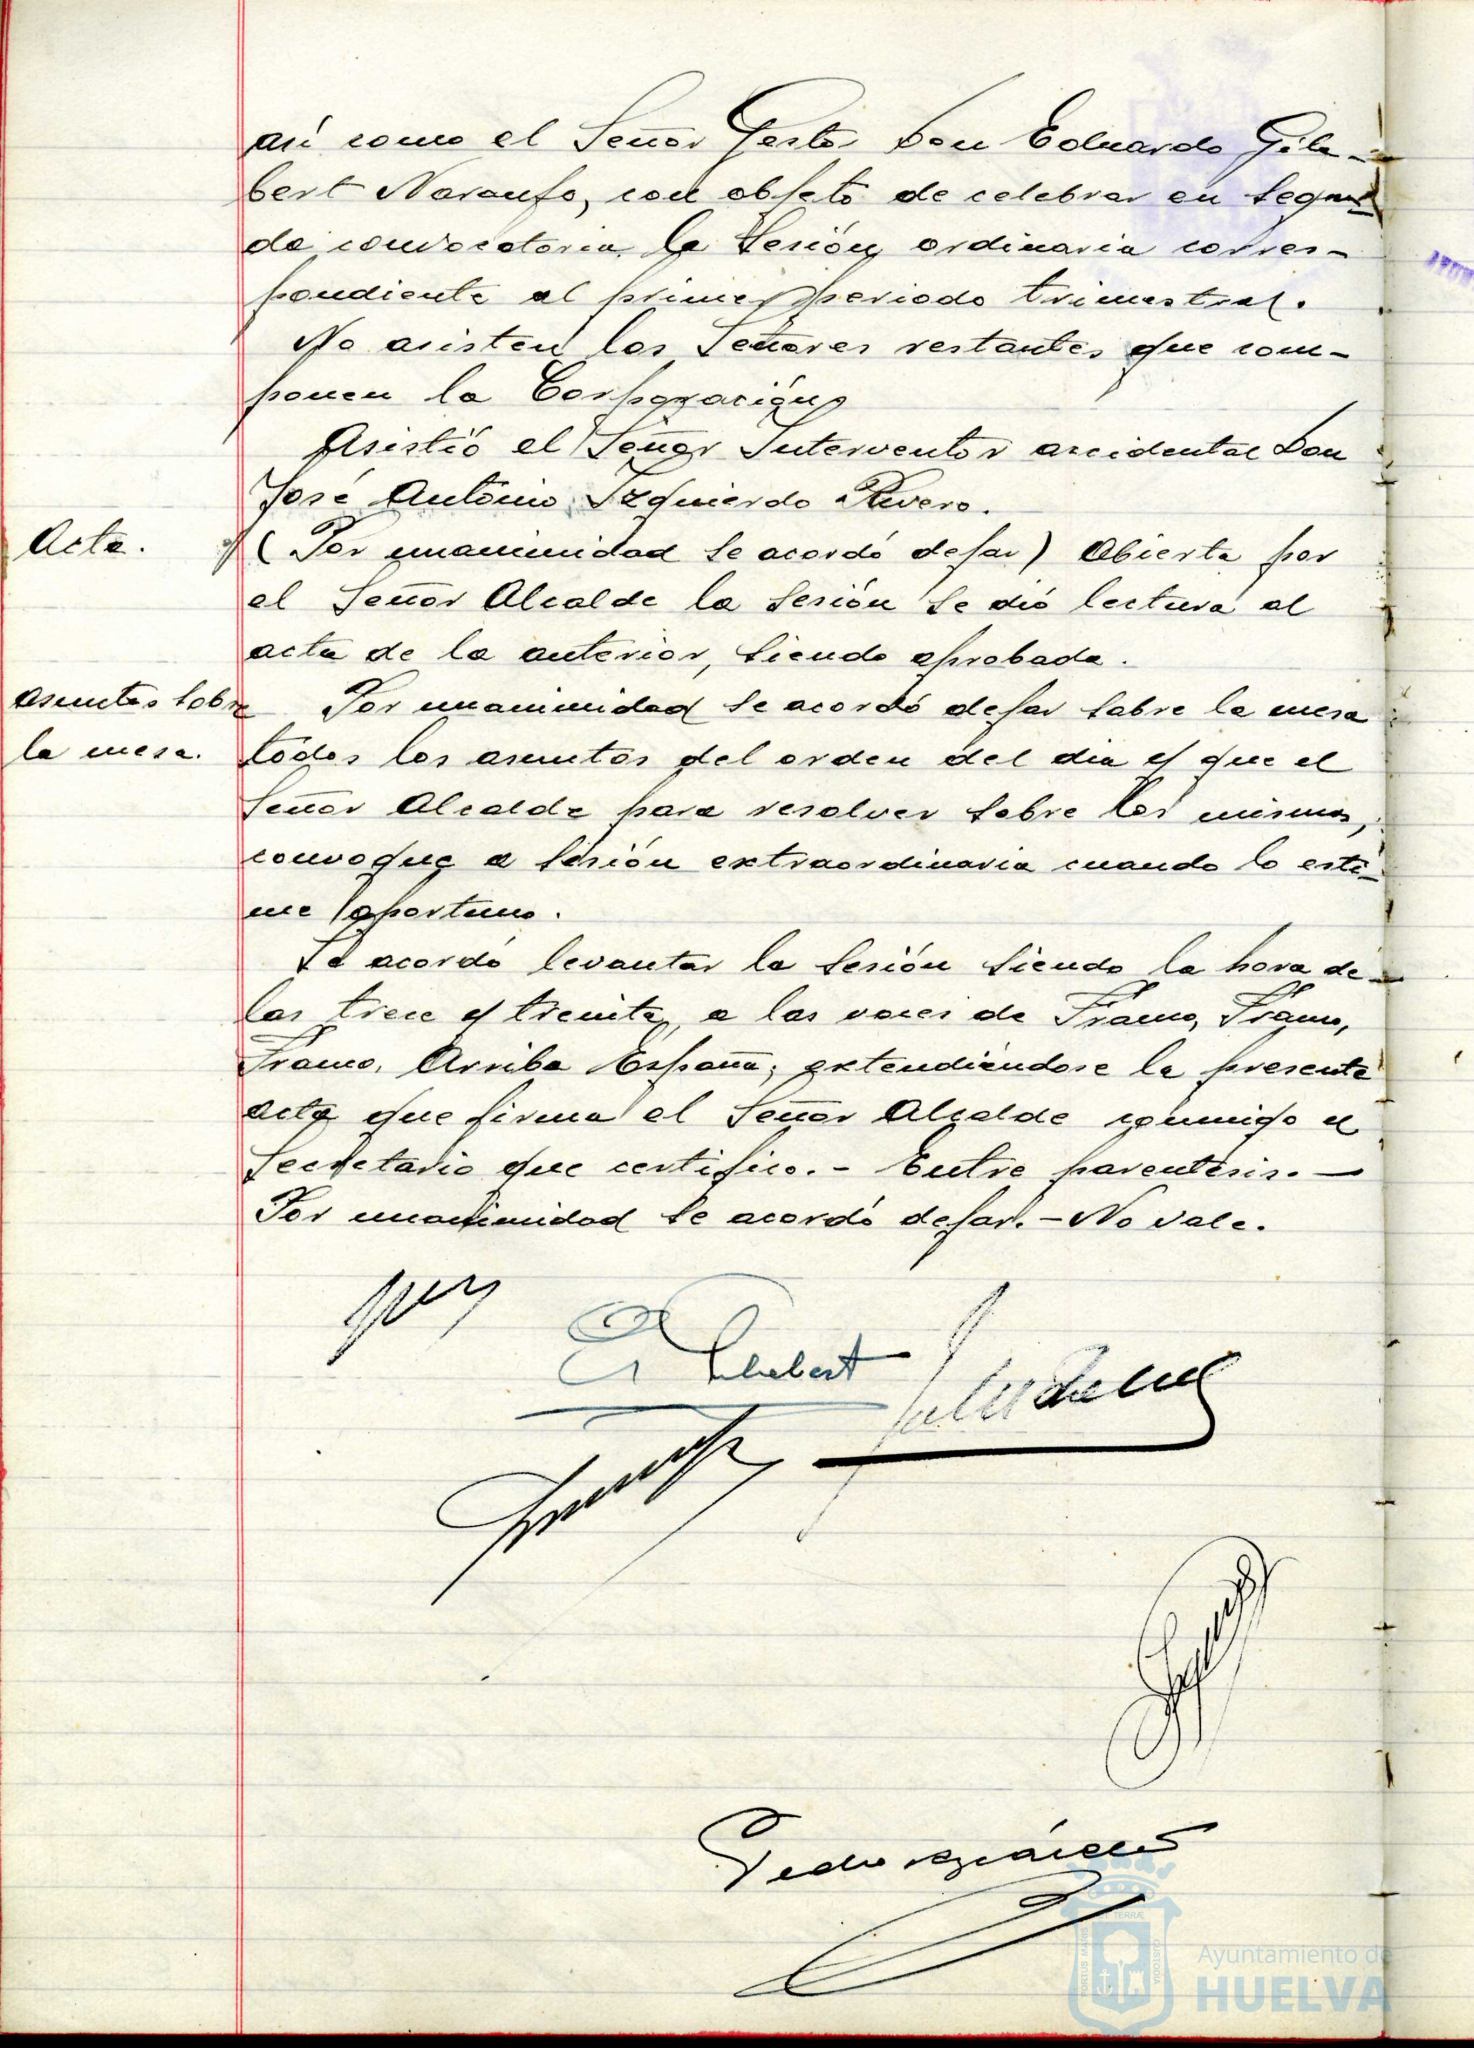 así como el Señor Gestor Don Eduardo Gila-
bert Naranjo, con objeto de celebrar en segun-
da convocatoria la sesión ordinaria corres-
pondiente al primer periodo trimestral.
No asisten los Señores restantes que com-
ponen la Corporación,
Asistió el Señor Interventor accidental Don
José Antonio Izquierdo Rivero.
Acta.
(Por unanimidad se acordó dejar) Abierta por
el Señor Alcalde la sesión se dió lectura al
acta de la anterior, siendo aprobada.
Asuntos sobre
la mesa.
Por unanimidad se acordó dejar sobre la mesa
todos los asuntos del orden del día y que el
Señor Alcalde para resolver sobre los mismos,
convoque a sesión extraordinaria cuando lo esti-
me oportuno.
Se acordó levantar la sesión siendo la hora de
las trece y treinta, a las voces de Franco, Franco,
Franco, Arriba España; extendiéndose la presente
acta que firma el Señor Alcalde conmigo el
Secretario que certifico.- Entre parentesis.-
Por unanimidad se acordó dejar.- No vale.
Pedro
PORTUS MARIS
TERRÆ
CUSTODIA
Ayuntamiento de
HUELVA